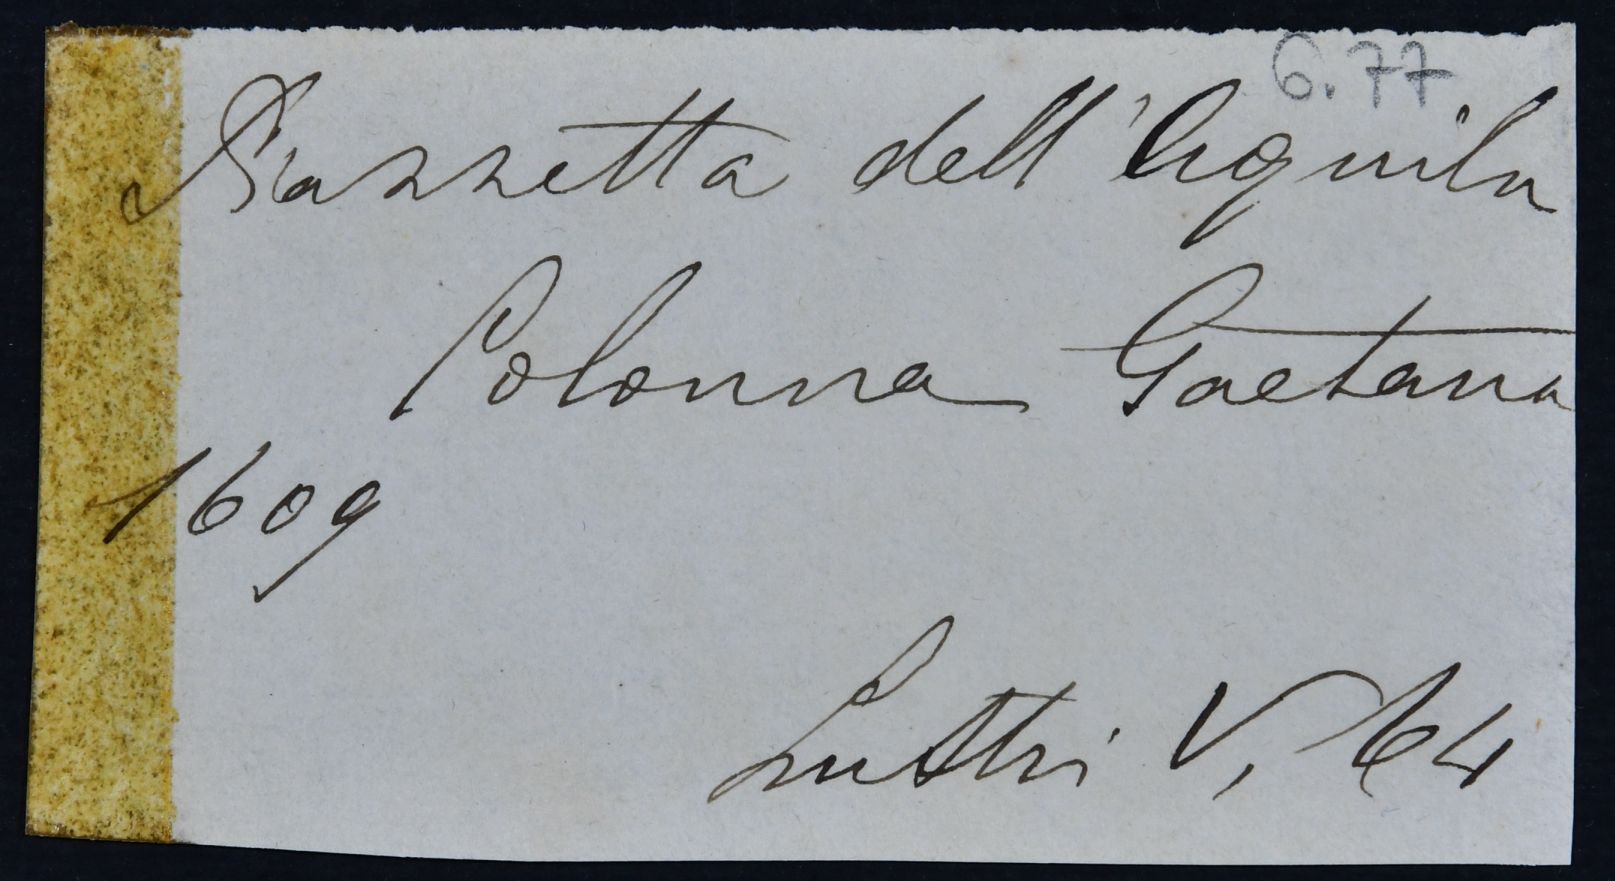 6.77
Piazzetta dell'Aquila
Colonna Gaetana
1609
Lustri V, 64